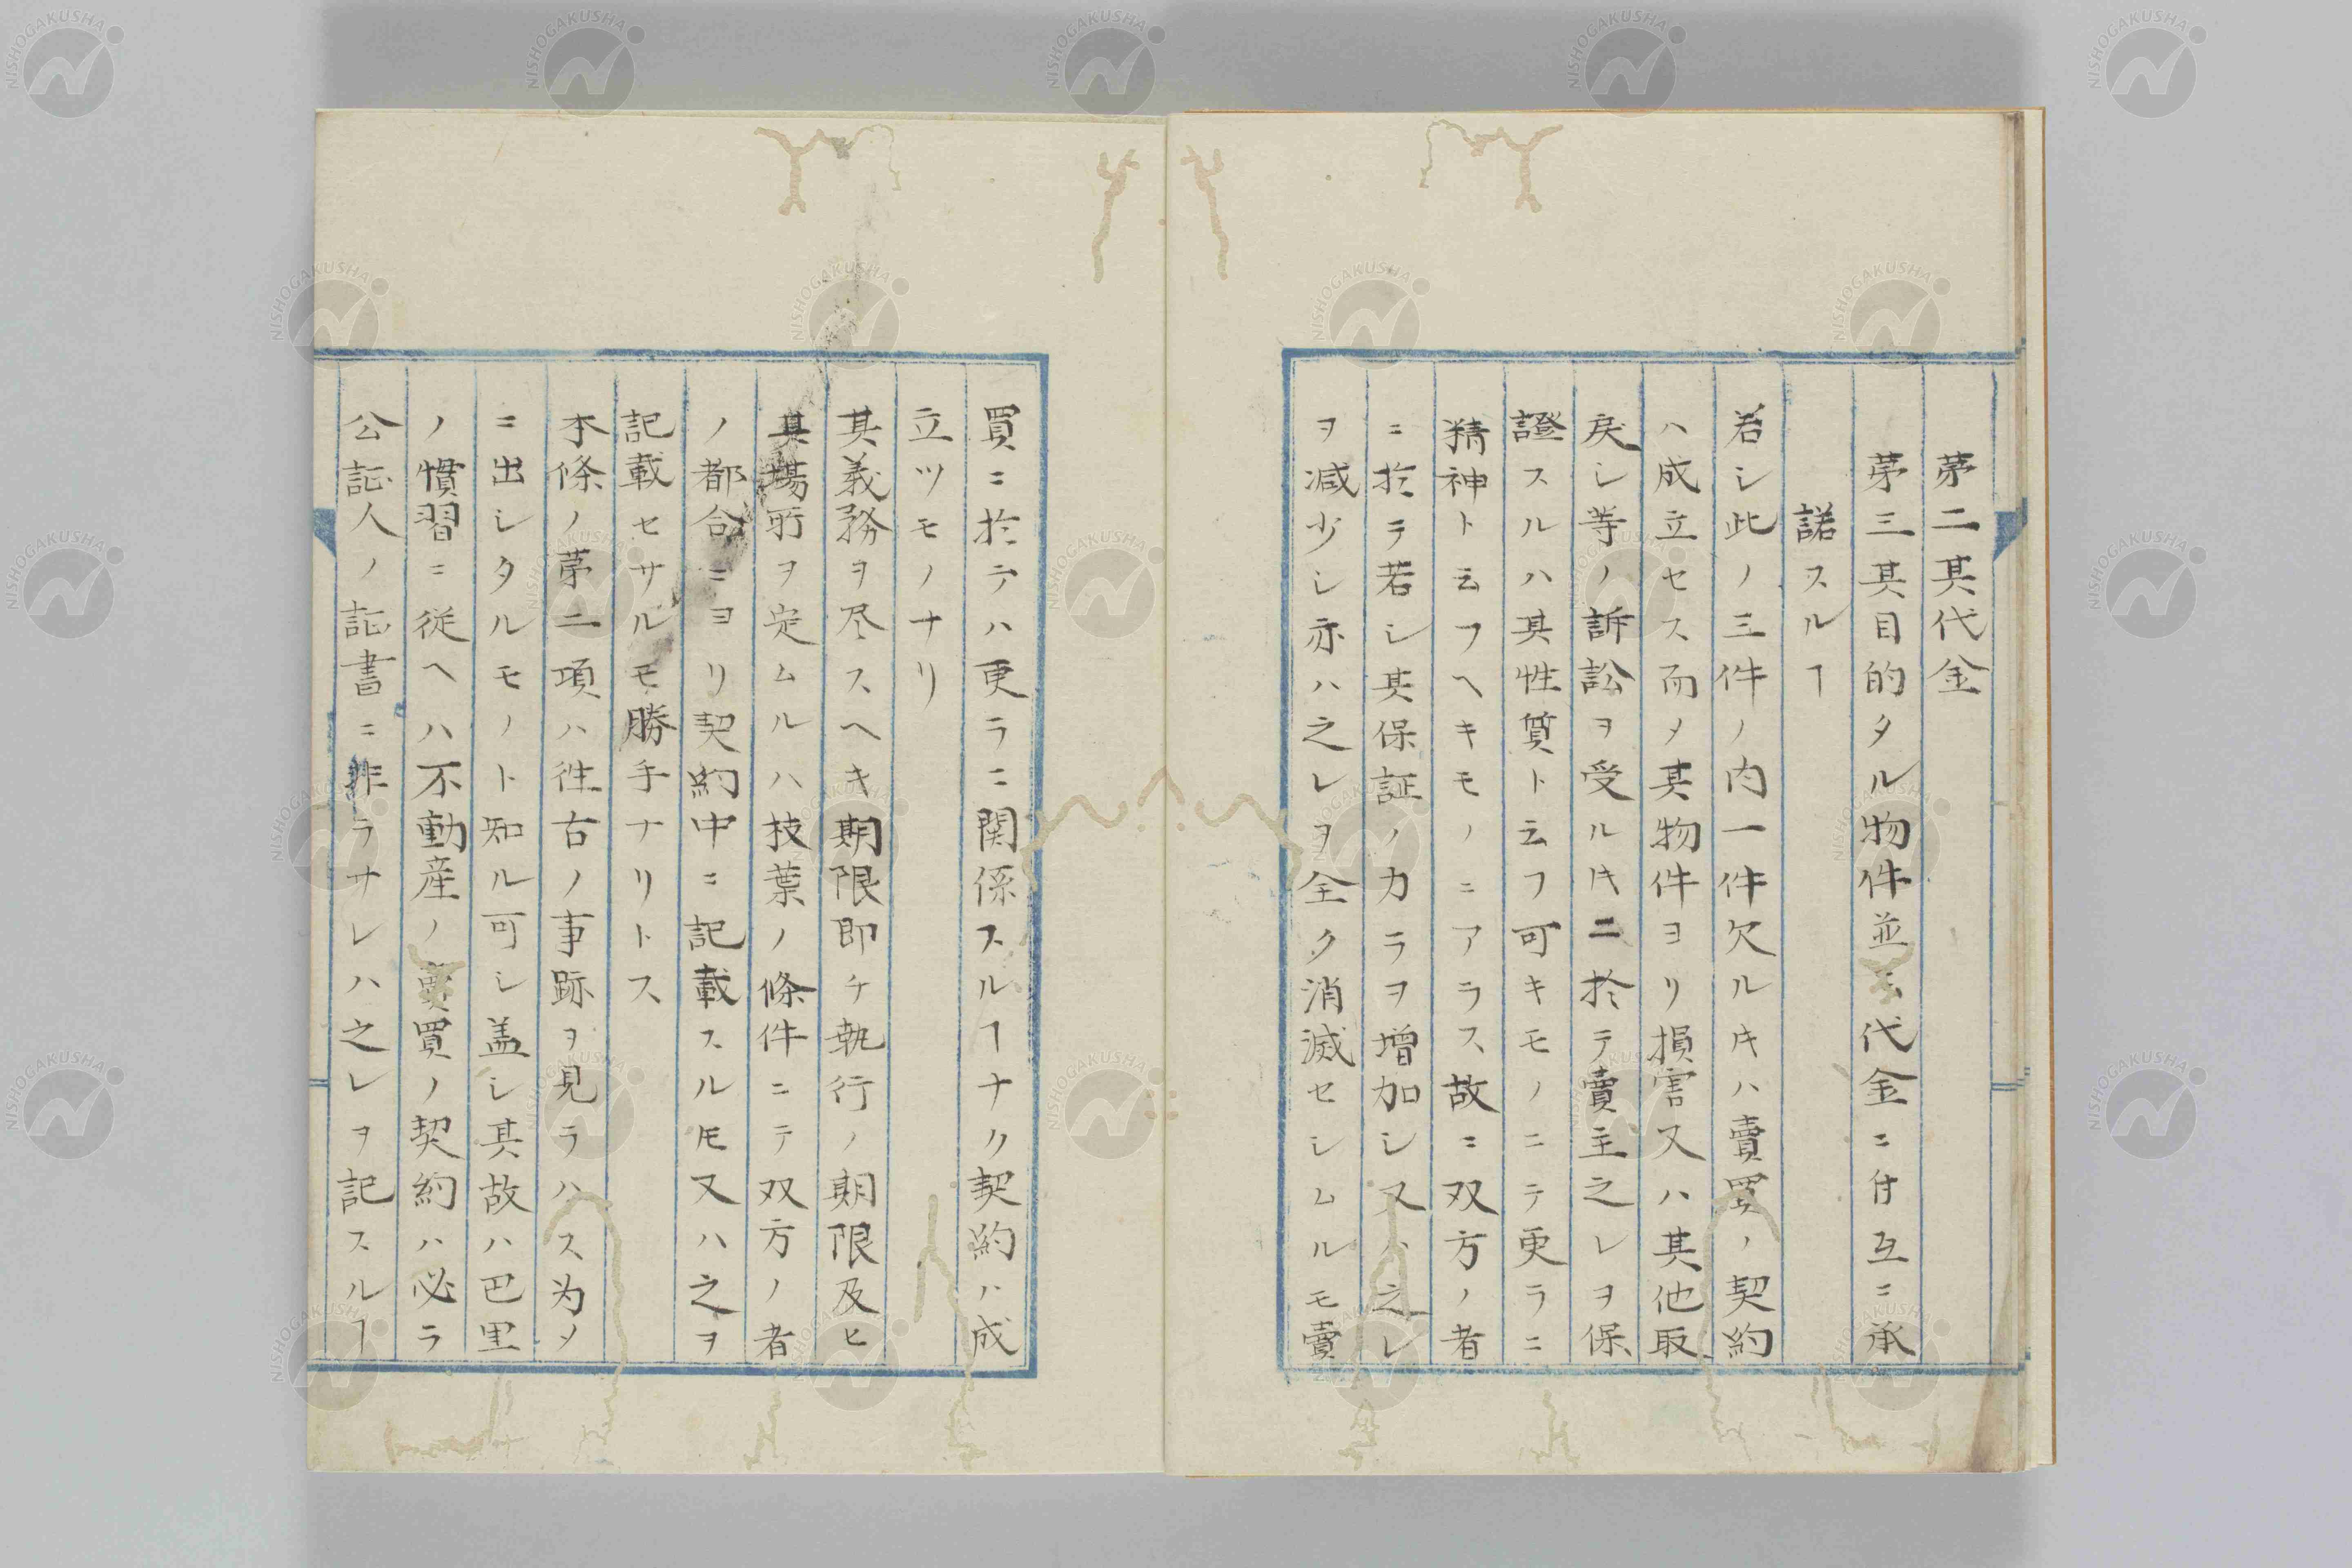 苐二其代金
苐三其目的タル物件並ニ代金ニ付互ニ承
諾スルヿ
若シ此ノ三件ノ内一件欠ルキハ賣買ノ契約
ハ成立セス而メ其物件ヨリ損害又ハ其他取
戻シ等ノ訴訟ヲ受ルキニ於テ賣主之レヲ保
證スルハ其性質ト云フ可キモノニテ更ラニ
精神ト云フヘキモノニアラス故ニ双方ノ者
ニ於テ若シ其保証ノ力ラヲ増加シ又ハ之レ
ヲ減少シ亦ハ之レヲ全ク消滅セシムルモ賣
買ニ於テハ更ラニ関係スルヿナク契約ハ成
立ツモノナリ
其義務ヲ尽スヘキ期限即チ執行ノ期限及ヒ
其場所ヲ定ムルハ枝葉ノ條件ニテ双方ノ者
ノ都合ニヨリ契約中ニ記載スルモ又ハ之ヲ
記載セサルモ勝手ナリトス
本條ノ苐二項ハ徃古ノ事跡ヲ見ラハス为メ
ニ出シタルモノト知ル可シ盖シ其故ハ巴里
ノ慣習ニ従ヘハ不動産ノ賣買ノ契約ハ必ラ
公証人ノ証書ニ非ラサレハ之レヲ記スルヿ
NISHOGAKUSHA